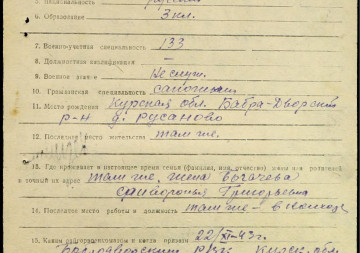 5. Национальность русский
6. Образование 3 кл.
7. Военно-учетная специальность 133
8. Должностная квалификация —
9. Военное звание
10. Гражданская специальность сапожник
11. Место рождения Курская обл.
р-н д. Русаново
12. Последнее место жительства там же.
13. Где проживает в настоящее время семья (фамилия, имя, отчество) жены или родителей
и точный их адрес там же, жена
Григорьевна
14. Последнее место работы и должность там же - в колхозе
15. Каким райгорвоенкоматом и когда призван 22/XI-43г.
РВК Курск. обл.